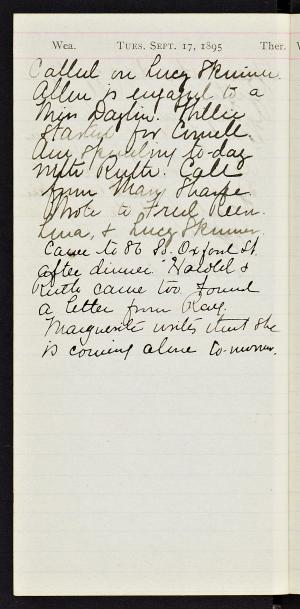 Wea. TUES. SEPT. 17, 1895 Ther.
Called on Lucy Skinner.
Allen is engaged to a
Miss Daplin. Nellie
started for Cornell.
Am spending to-day
with Ruth. Call
from Mary Sharpe.
Wrote to Fred Keen.
Lina, & Lucy Skinner.
Came to 86 So. Oxford St.
after dinner. Harold &
Ruth came too. Found
a letter from Ray.
Marguerite writes that she
is coming alone to-morrow.